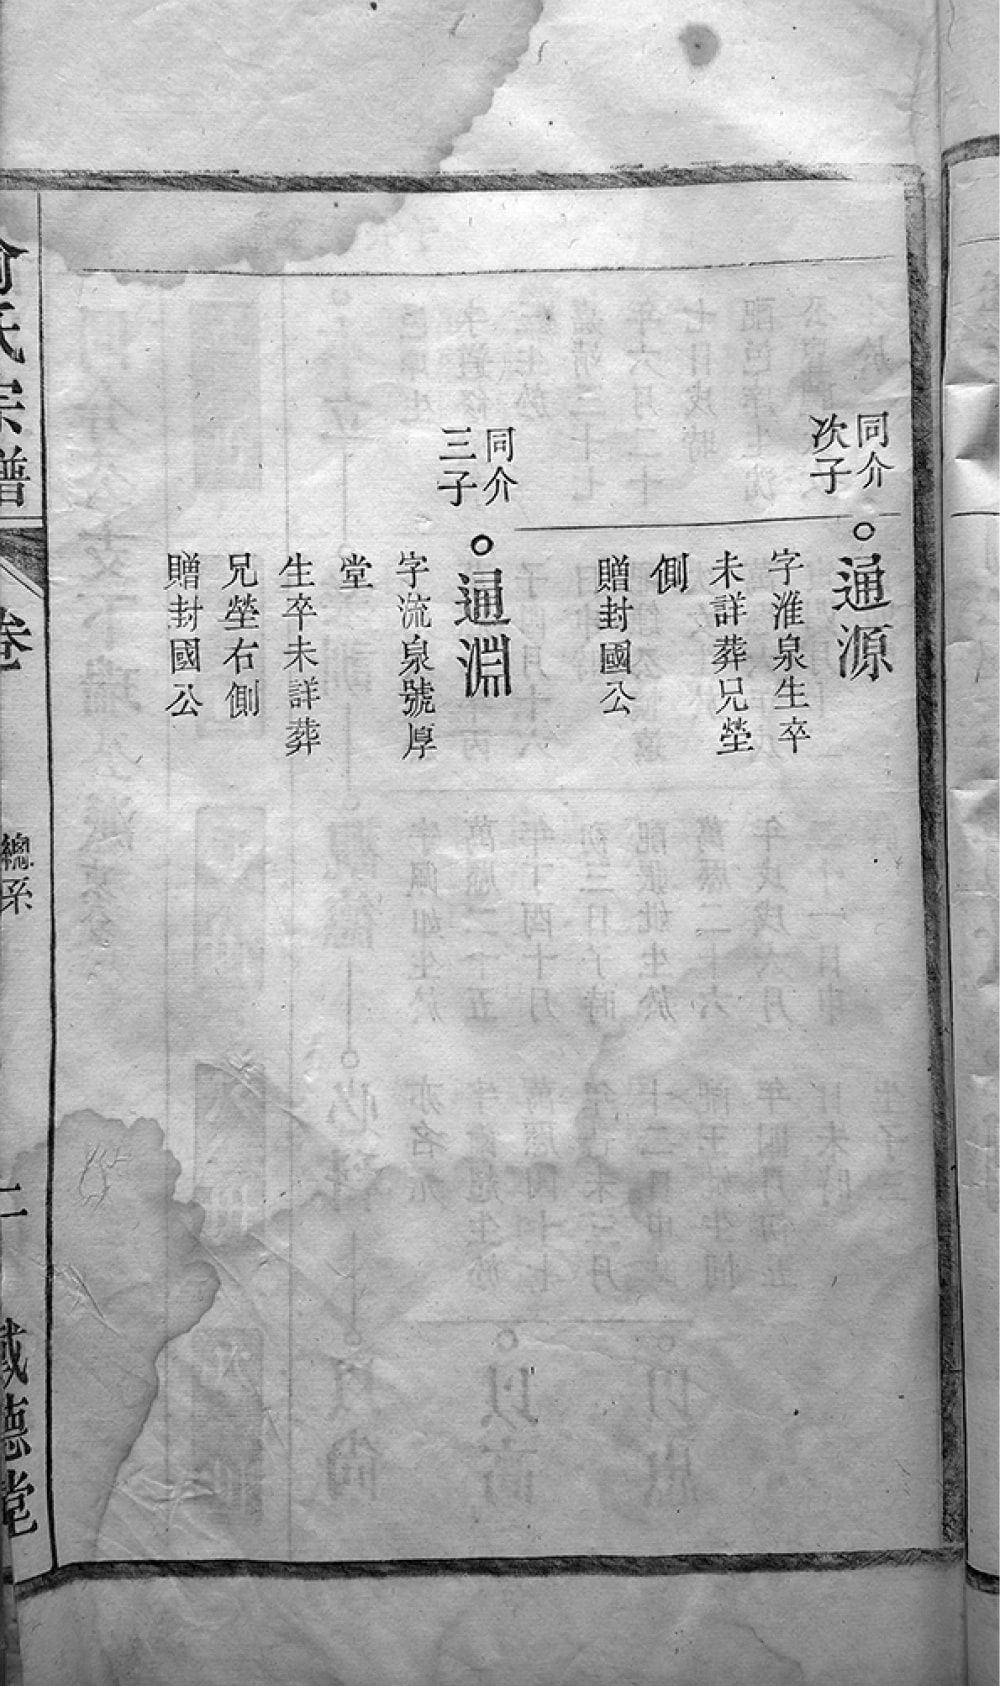 同介
次子
通源
字淮泉生卒
未詳葬兄塋
側
贈封國公
同介
三子
通淵
字流泉號厚
堂
生卒未詳葬
兄塋右側
贈封國公
俞氏宗譜
卷
總系
德堂